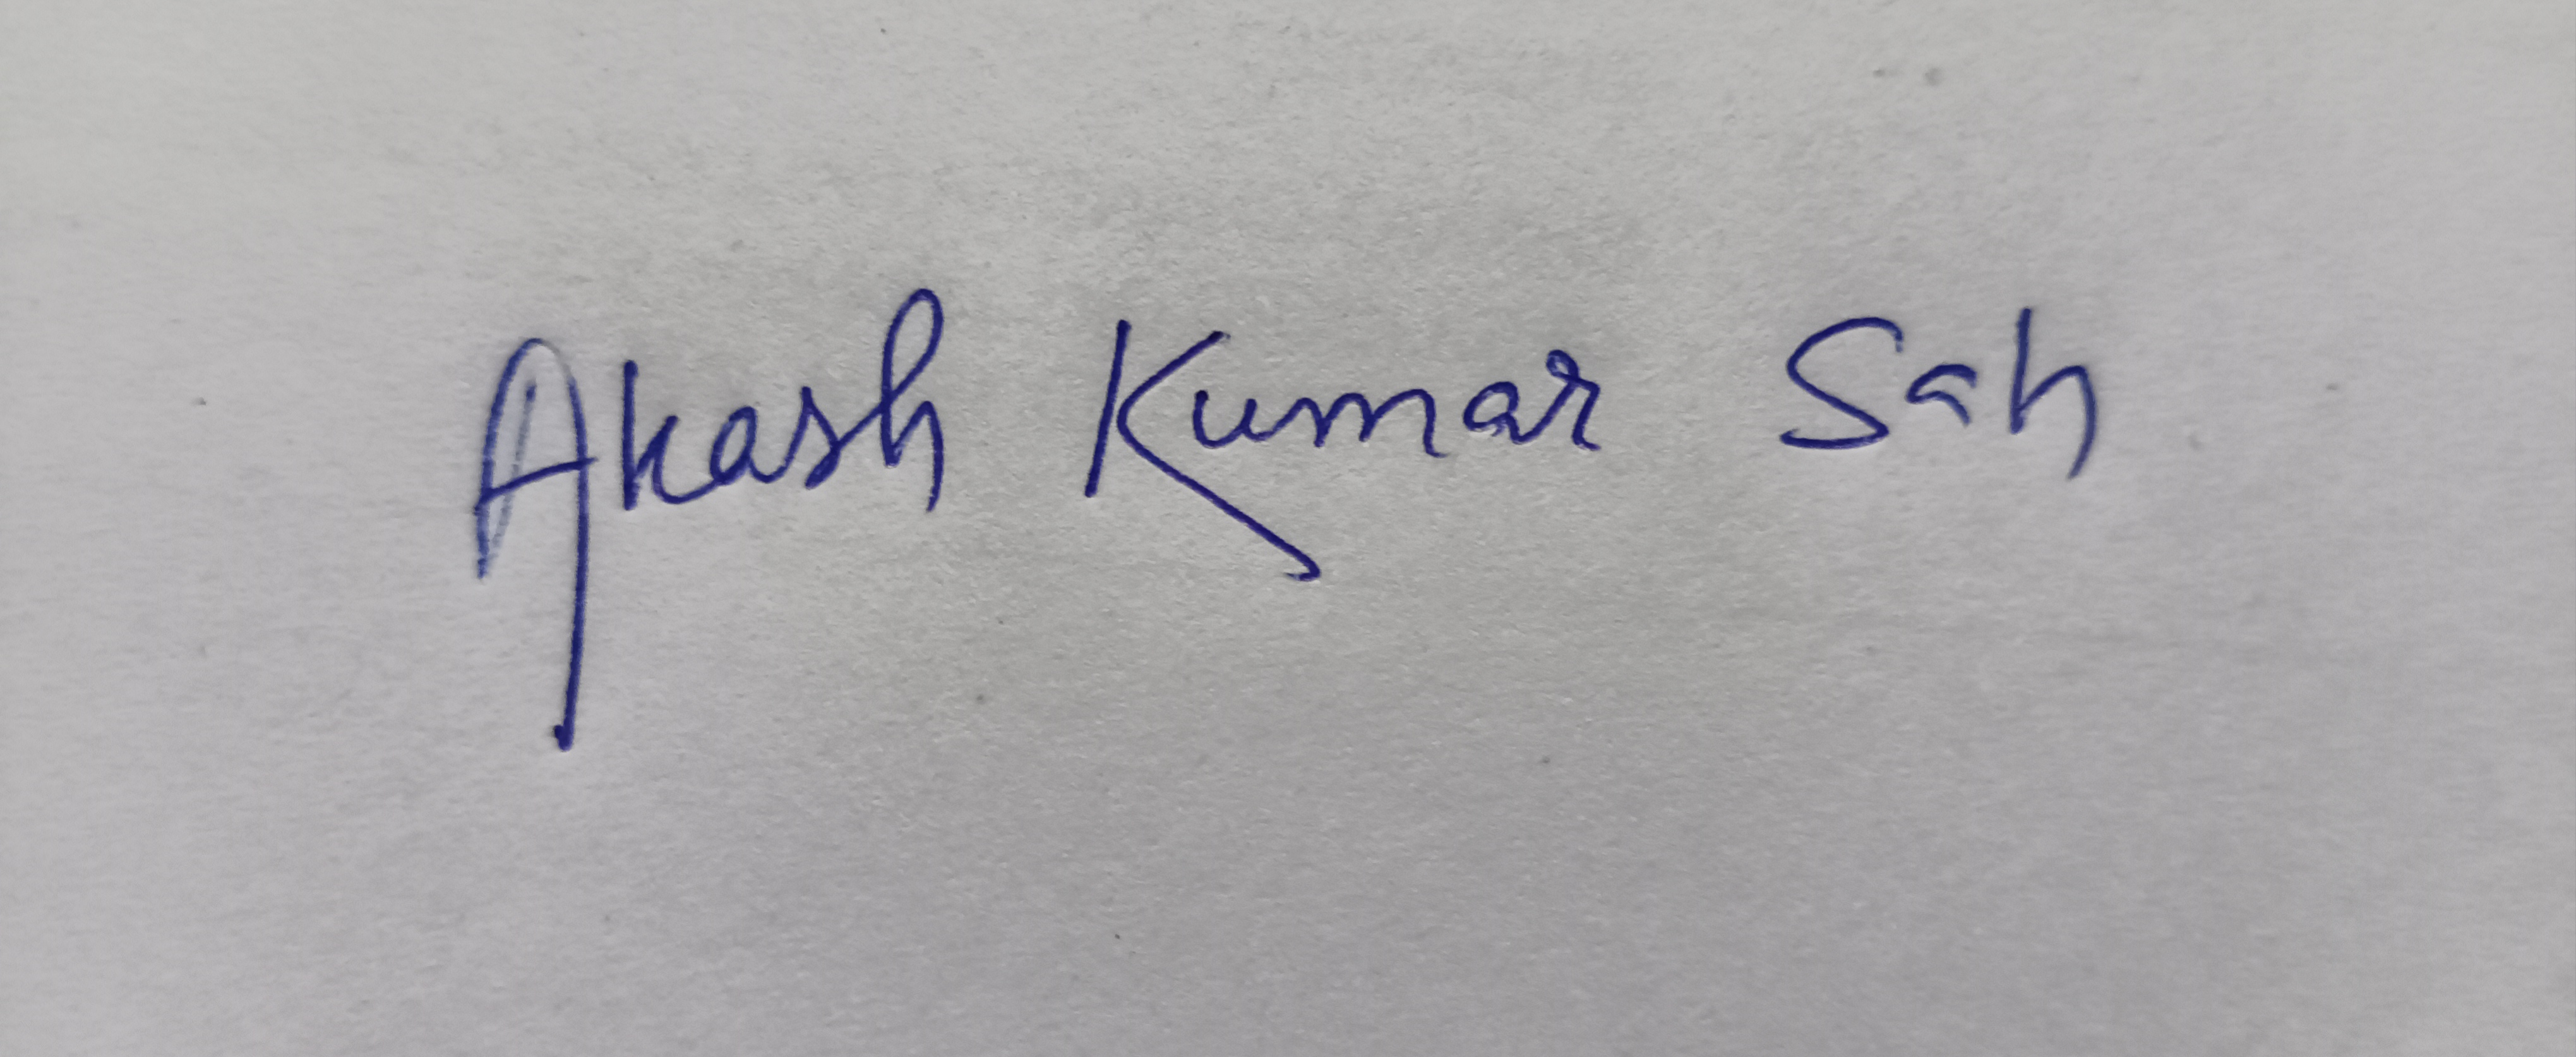 Akash Kumar Sah